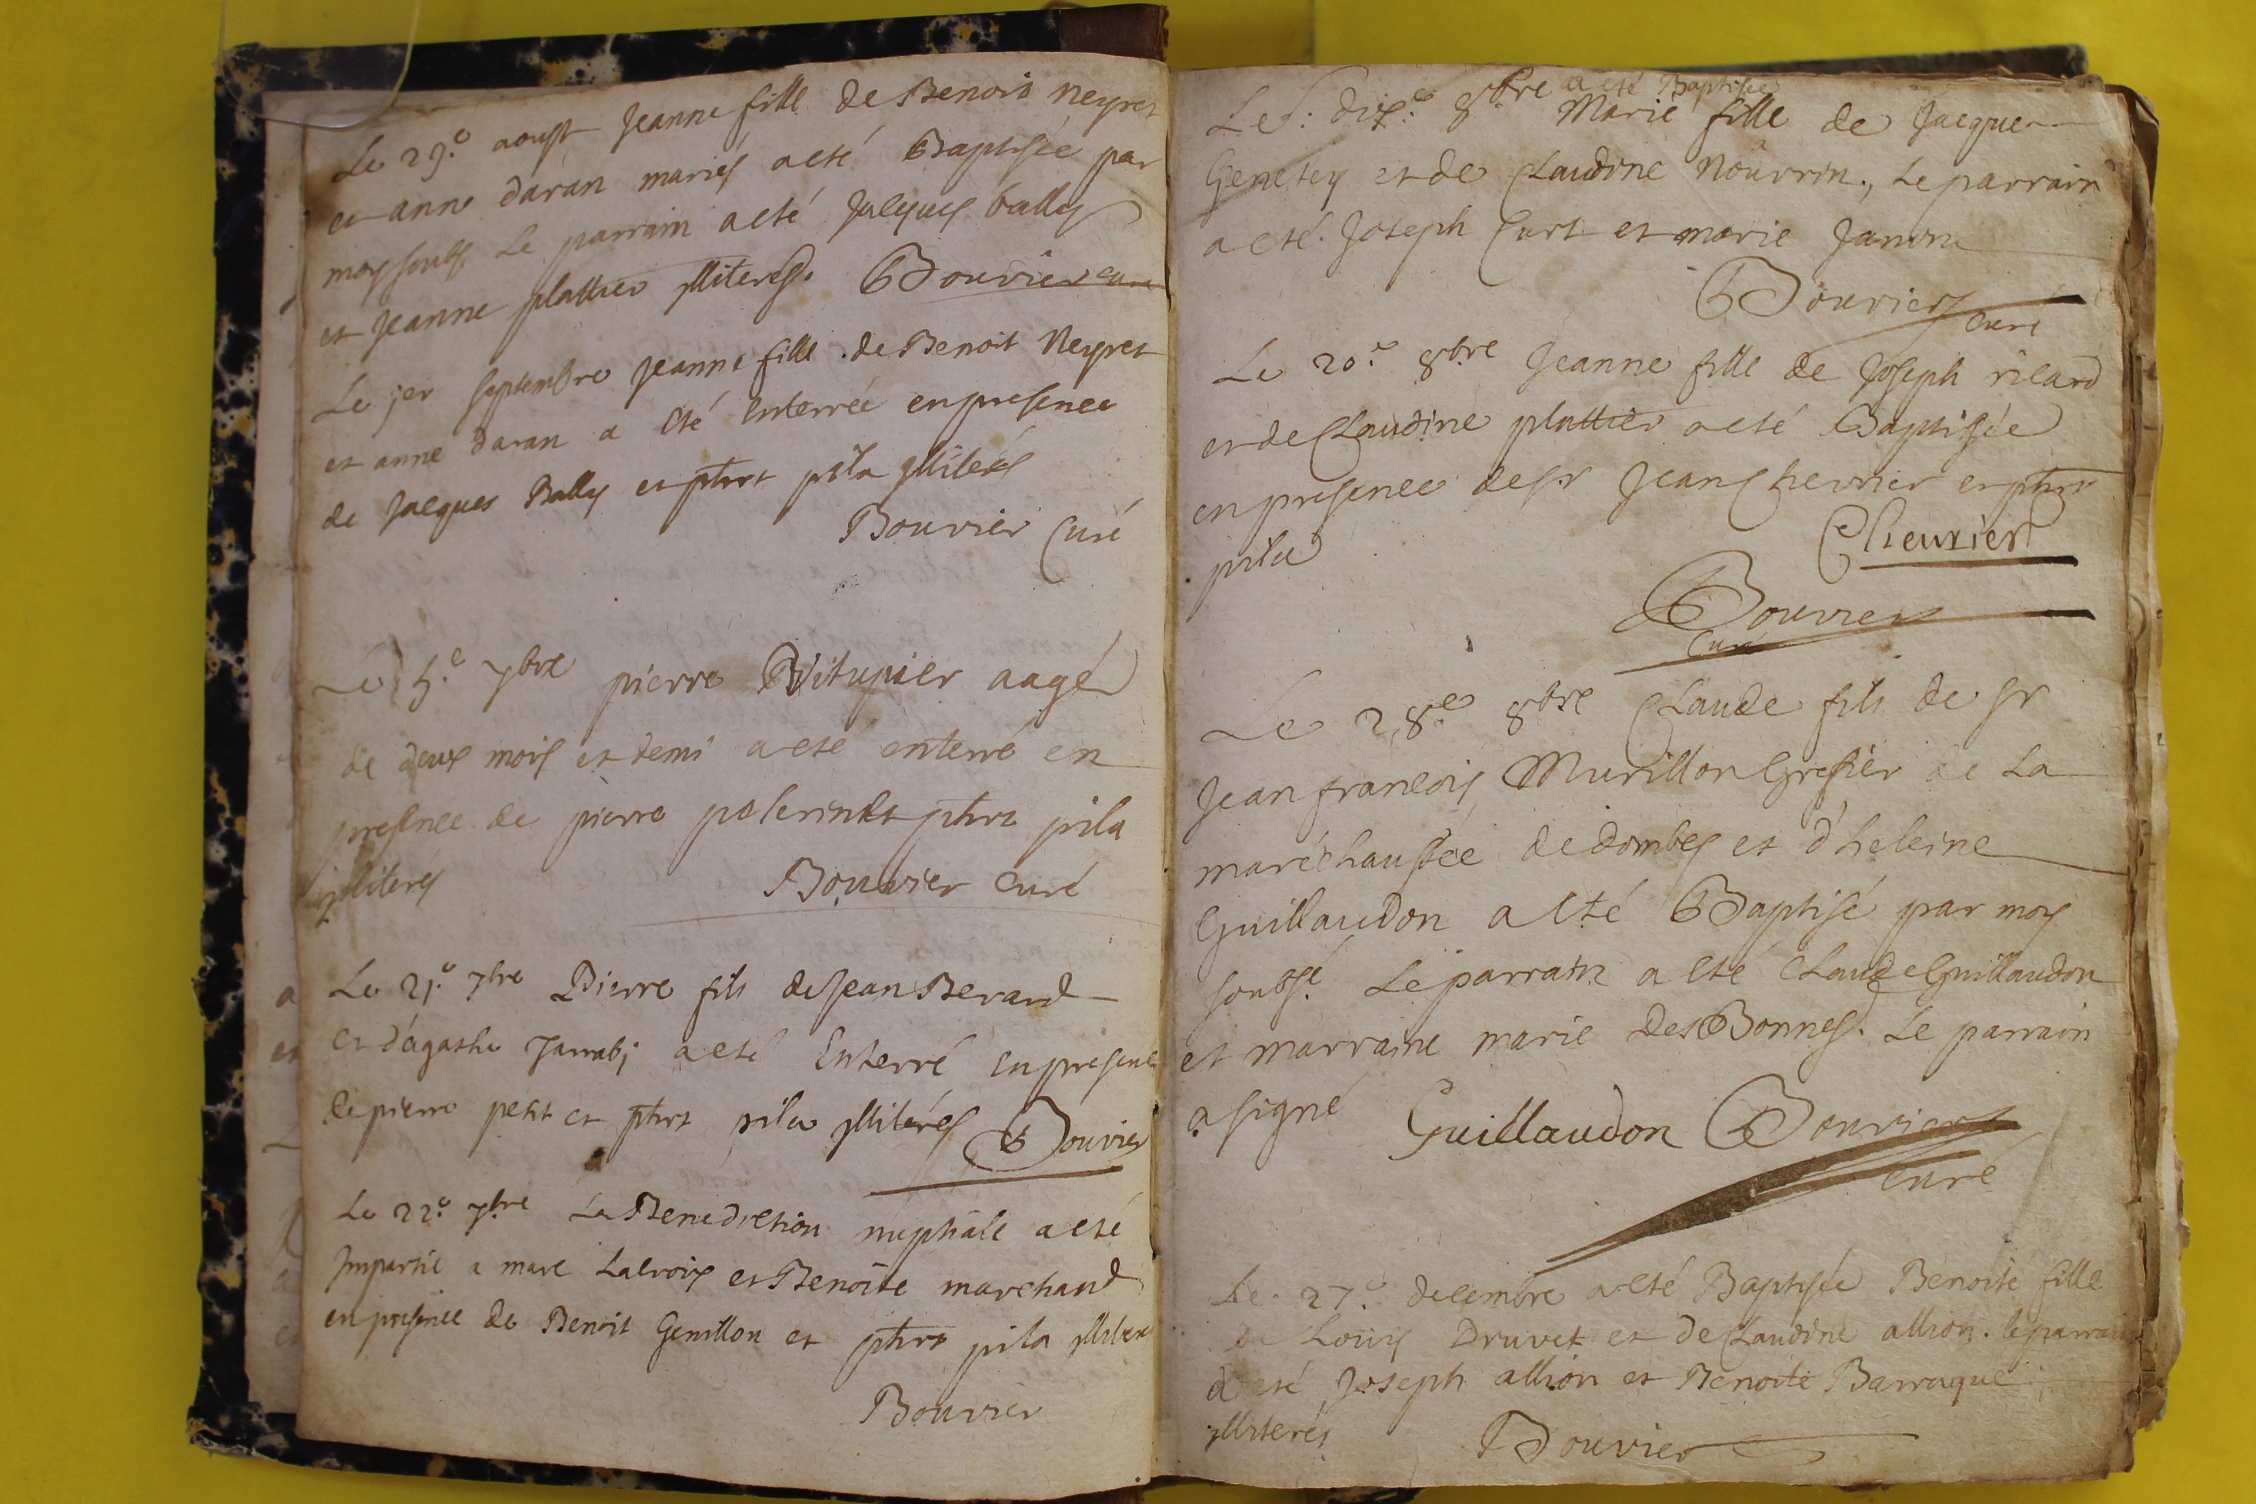 Le 29.e aoust Jeanne fille de Benoit Neyret
et anne daran mariés a eté Baptisée par
moy soubs. Le parrain a eté Jacques bally
et Jeanne plattier illiterés. Bouvier curé
Le jer septembre Jeanne fille de Benoit Neyret
et anne daran a eté Enterrée en presence
de Jacques Bally et phrt pila illiterés
Bouvier Curé
Le 5.e 7bre pierre Vitupier aagé
de deux mois et demi a eté enterré en
presence de pierre et phrt pila
illiterés
Bouvier curé
Le 21.e 7bre Pierre fils de Jean Berard
et d'agathe a eté Enterré en presence
de pierre petit et phrt pila illiterés Bouvier
Le 22.e 7bre La Benediction nuptiale a eté
Impartie a marc Lacroix et Benoite marchand
en presence de Benoit Genillon et phrt pila
Bouvier
Le 8bre a eté Baptisée
Marie fille de Jacques
Genetey et de Claudine Nourrin, Le parrain
a eté Joseph Curt et marie Janin
Bouvier
curé
Le 20.e 8bre Jeanne fille de Joseph ricard
et de Claudine plattier a eté Baptisée
en presence de sr Jean Chevrier et phrt
pila
Cheurier
Bouvier
Curé
Le 28.e 8bre Claude fils de sr
Jean francois Murillon Grefier de La
maréchaussée de dombes et d'heleine
Guillaudon a eté Baptisé par moy
soubsé. Le parrain a eté Claude Guillaudon
et marraine marie des Bonnes. Le parrain
a signé
Guillaudon Bouvier
Curé
Le 27.e decembre a eté Baptisée Benoite fille
de Louis Druvet et de Claudine allion. le parrain
a eté Joseph allion et Benoite Barraque
illiterés
Bouvier